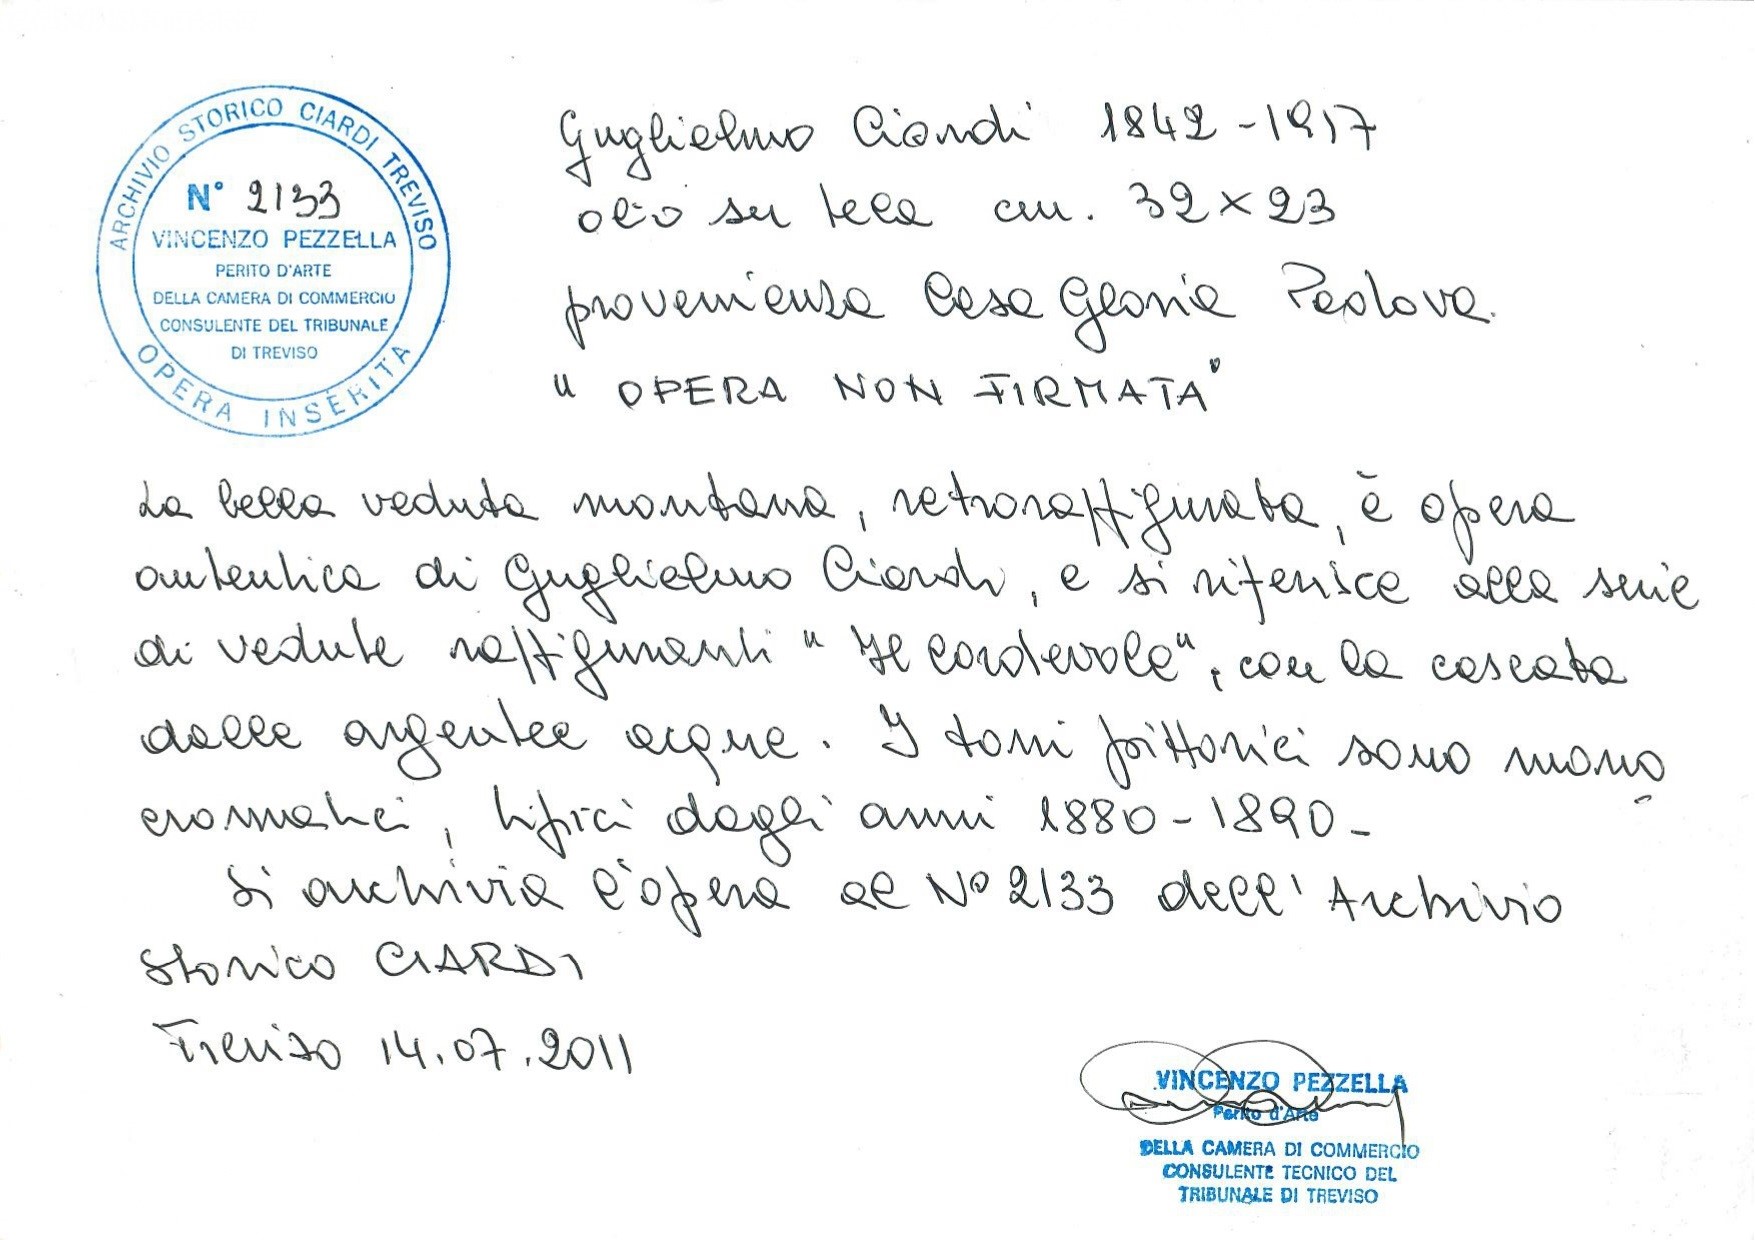 ARCHIVIO STORICO CIARDI TREVISO
N° 2133
VINCENZO PEZZELLA
PERITO D'ARTE
DELLA CAMERA DI COMMERCIO
CONSULENTE DEL TRIBUNALE
DI TREVISO
OPERA INSERITA
Guglielmo Ciardi 1842-1917
olio su tela cm. 32x23
provenienza Casa Gloria Padova.
"OPERA NON FIRMATA"
La bella veduta montana, retroraffigurata, è opera
autentica di Guglielmo Ciardi, e si riferisce alla serie
di vedute raffiguranti "Il cordevole", con la cascata
dalle argentee acque. I toni pittorici sono mono
cromatici, tipici degli anni 1880-1890-
Si archivia l'opera al N° 2133 dell'Archivio
Storico CIARDI
Treviso 14.07.2011
VINCENZO PEZZELLA
Perito d'Arte
DELLA CAMERA DI COMMERCIO
CONSULENTE TECNICO DEL
TRIBUNALE DI TREVISO